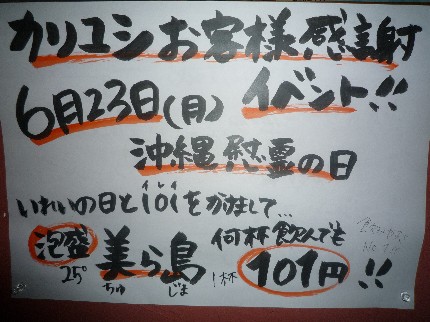 カリユシお客様感謝
6月23日(月) イベント!!
沖縄慰霊の日
いれいの日と101をかけまして...
泡盛 25° 美ら島 ちゅ じま 何杯飲んでも 1杯 101円!!